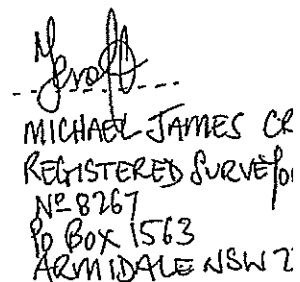 MICHAEL JAMES CR
REGISTERED SURVEYOR
Nº 8267
PO BOX 1563
ARMIDALE NSW 2